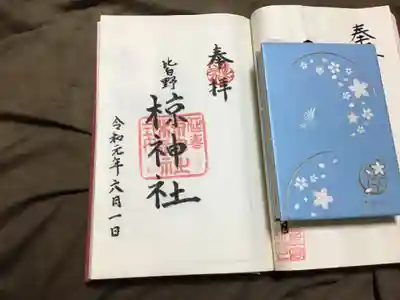 奉拝
皆野
椋神社
令和元年六月一日
奉